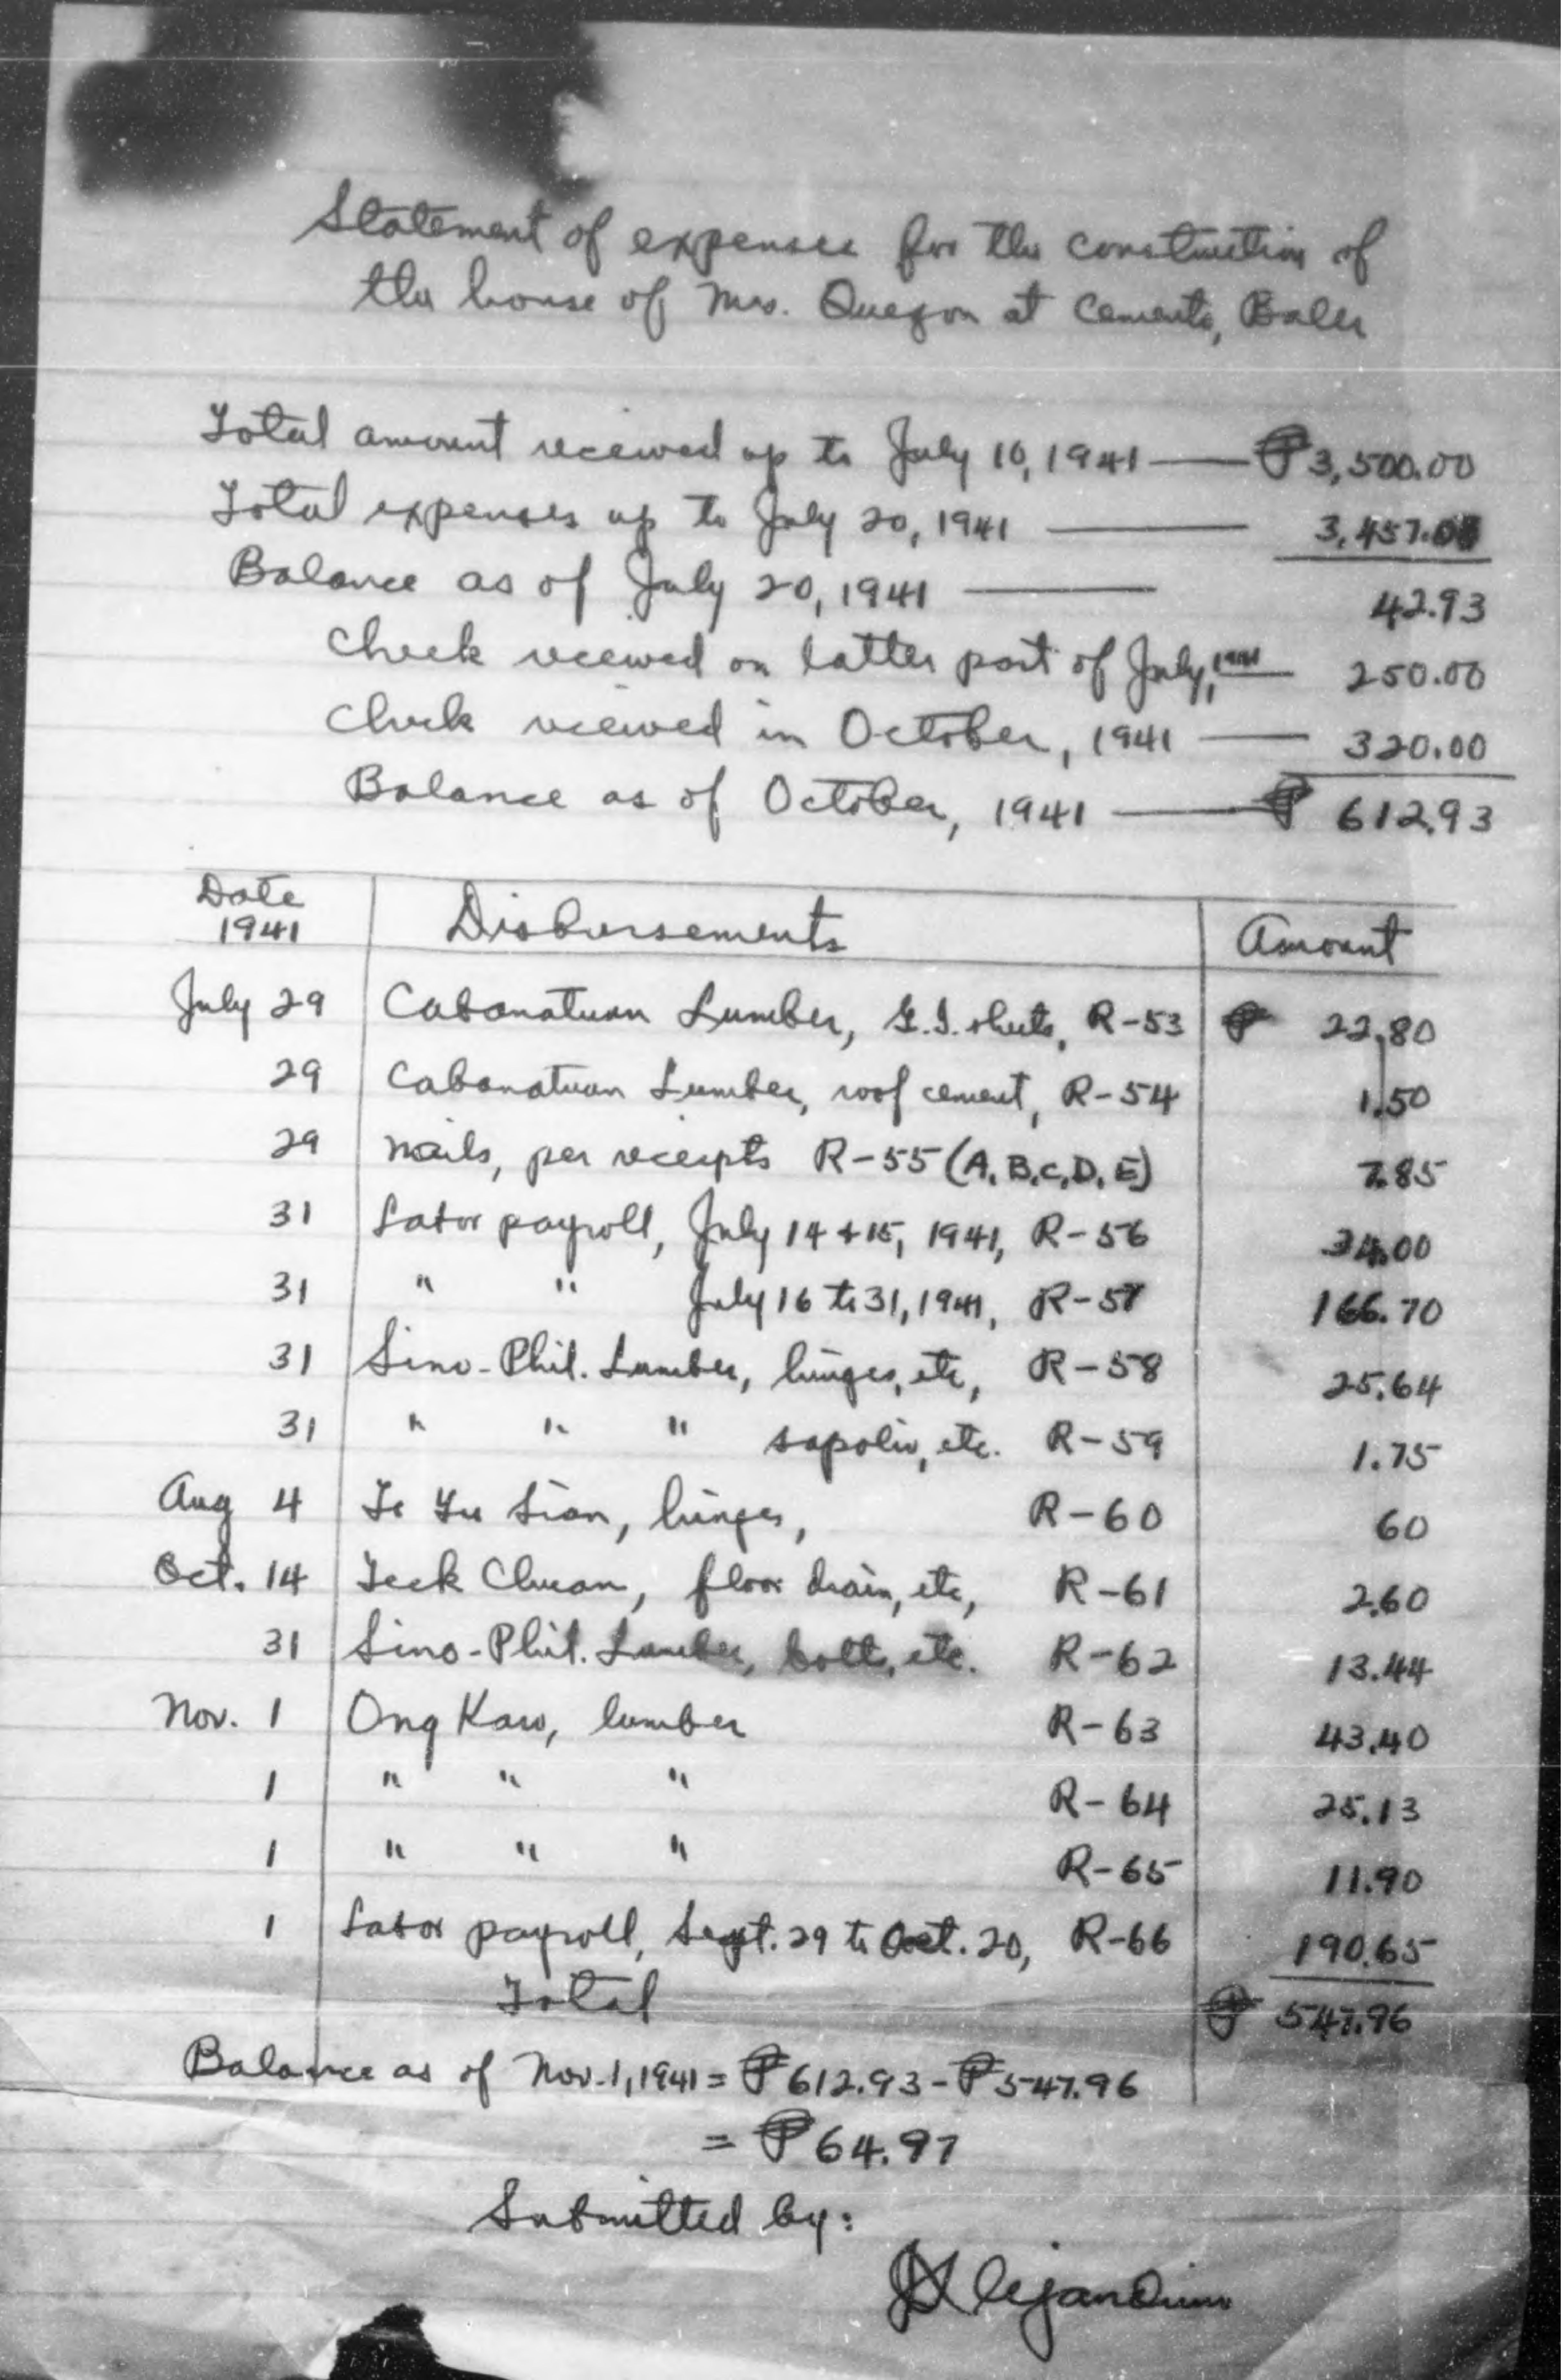 Statement of expenses for the construction of
the house of Mrs. Quezon at Cemento, Baler
Total amount received up to July 10, 1941 — ₱3,500.00
Total expenses up to July 20, 1941 — 3,457.07
Balance as of July 20, 1941 — 42.93
Check received on latter part of July, 1941 — 250.00
Check received in October, 1941 — 320.00
Balance as of October, 1941 — ₱ 612.93
Date 1941 Disbursements Amount
July 29 Cabanatuan Lumber, G.I. sheets, R-53 ₱ 22.80
29 Cabanatuan Lumber, roof cement, R-54 1.50
29 Nails, per receipts R-55 (A, B, C, D, E) 7.85
31 Labor payroll, July 14 + 15, 1941, R-56 34.00
31 " " July 16 to 31, 1941, R-57 166.70
31 Sino-Phil. Lumber, hinges, etc, R-58 25.64
31 " " " sapolin, etc. R-59 1.75
Aug 4 Te Yu Sian, hinges, R-60 60
Oct. 14 Teck Chuan, floor drain, etc, R-61 2.60
31 Sino-Phil. Lumber, bolts, etc. R-62 13.44
Nov. 1 Ong Kaw, lumber R-63 43.40
1 " " " R-64 25.13
1 " " " R-65 11.90
1 Labor payroll, Sept. 29 to Oct. 20, R-66 190.65
Total ₱ 547.96
Balance as of Nov. 1, 1941 = ₱612.93 - ₱547.96
= ₱64.97
Submitted by:
Alejandrino